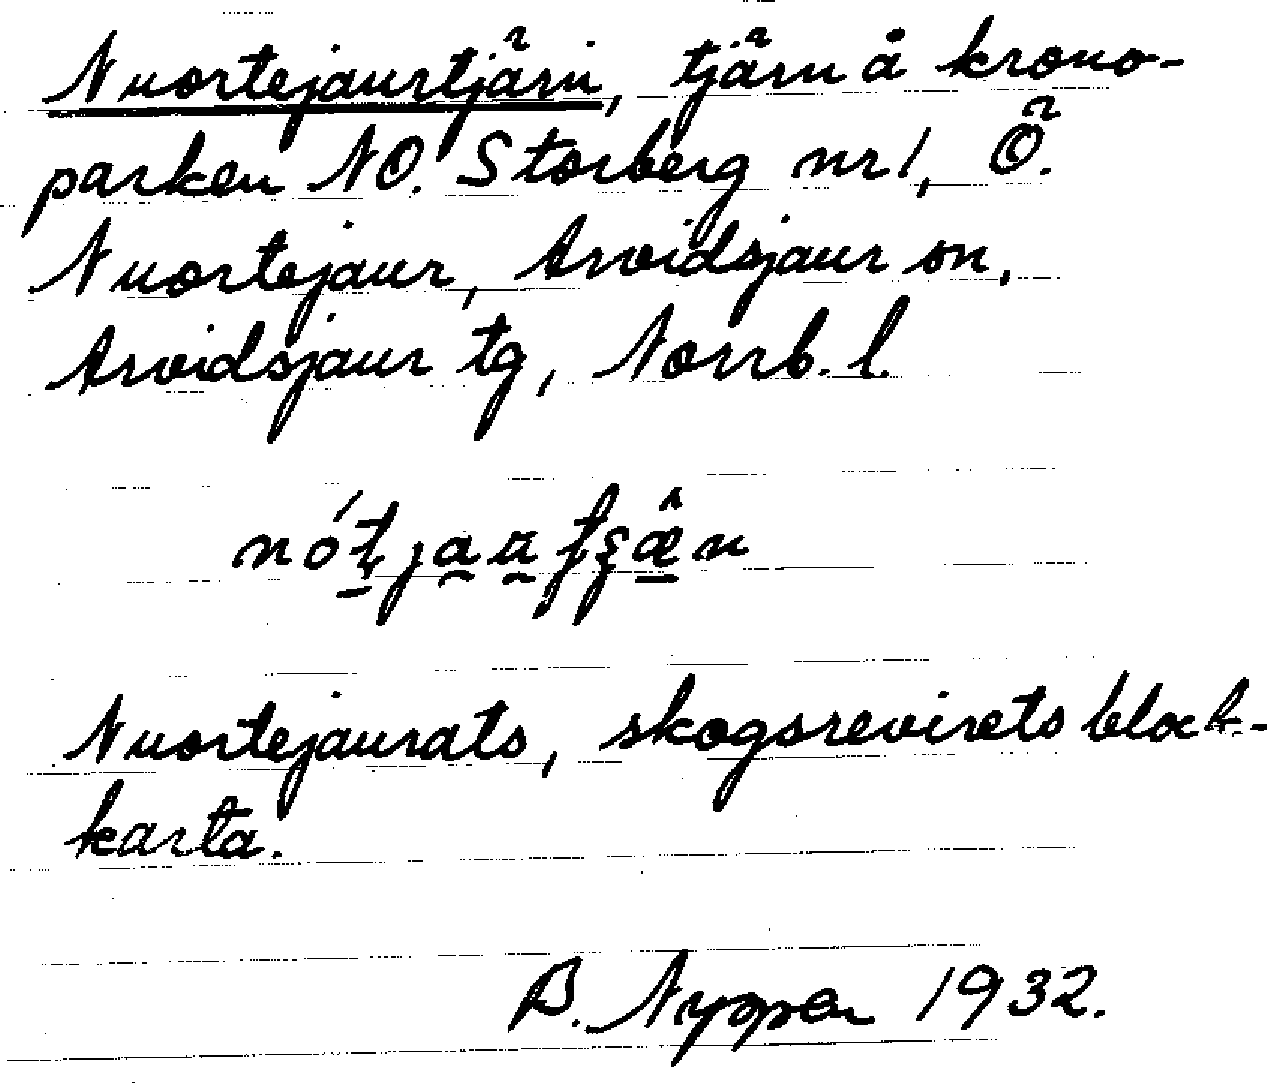 Nuortejaurtjärn, tjärn å krono-
parken NO. Storberg nr 1, Ö.
Nuortejaur, Arvidsjaur sn,
Arvidsjaur tg, Norrb. l.
Nuortejaurats, skogsrevirets block-
karta.
B. Nyper 1932.